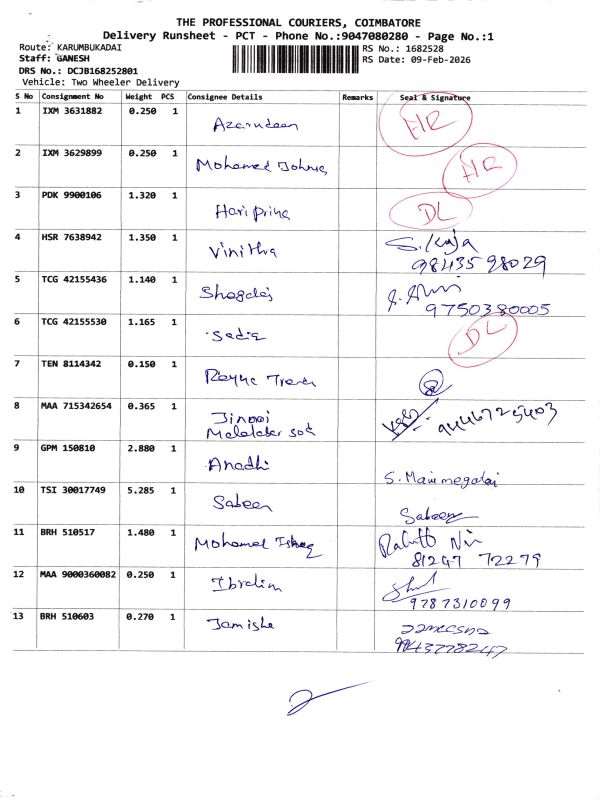 THE PROFESSIONAL COURIERS, COIMBATORE
Delivery Runsheet - PCT - Phone No.:9047080280 - Page No.:1
Route: KARUMBUKADAI RS No.: 1682528
Staff: GANESH RS Date: 09-Feb-2026
DRS No.: DCJB168252801
Vehicle: Two Wheeler Delivery
S No Consignment No Weight PCS Consignee Details Remarks Seal & Signature
1 IXM 3631882 0.250 1 Azarudeen HR
2 IXM 3629899 0.250 1 Mohamed HR
3 PDK 9900106 1.320 1 Haripriya DL
4 HSR 7638942 1.350 1 Vinithra S.
98435 98029
5 TCG 42155436 1.140 1
9750380005
6 TCG 42155530 1.165 1 Sadiq DL
7 TEN 8114342 0.150 1
8 MAA 715342654 0.365 1 9446725403
9 GPM 150810 2.880 1 S. Manimegalai
10 TSI 30017749 5.285 1 Sabeen Sabeen
11 BRH 510517 1.480 1 Mohamed
81247 72279
12 MAA 9000360082 0.250 1 Ibrahim
9787310099
13 BRH 510603 0.270 1 Jamisha